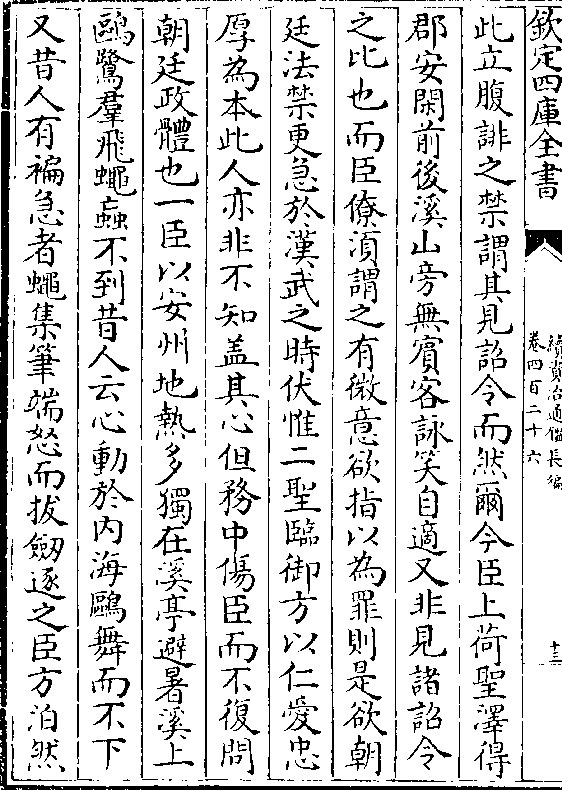 欽定四庫全書
續資治通鑑長編
卷四百二十六
十三
此立腹誹之禁謂其見詔令而然爾今臣上荷聖澤得
郡安閑前後溪山旁無賓客詠笑自適又非見諸詔令
之比也而臣僚湏謂之有微意欲指以為罪則是欲朝
廷法禁更急於漢武之時伏惟二聖臨御方以仁愛忠
厚為本此人亦非不知盖其心但務中傷臣而不復問
朝廷政體也一臣以安州地熱多獨在溪亭避暑溪上
鷗鷺羣飛蠅蟲不到昔人云心動於内海鷗舞而不下
又昔人有褊急者蠅集筆端怒而拔劒逐之臣方泊然